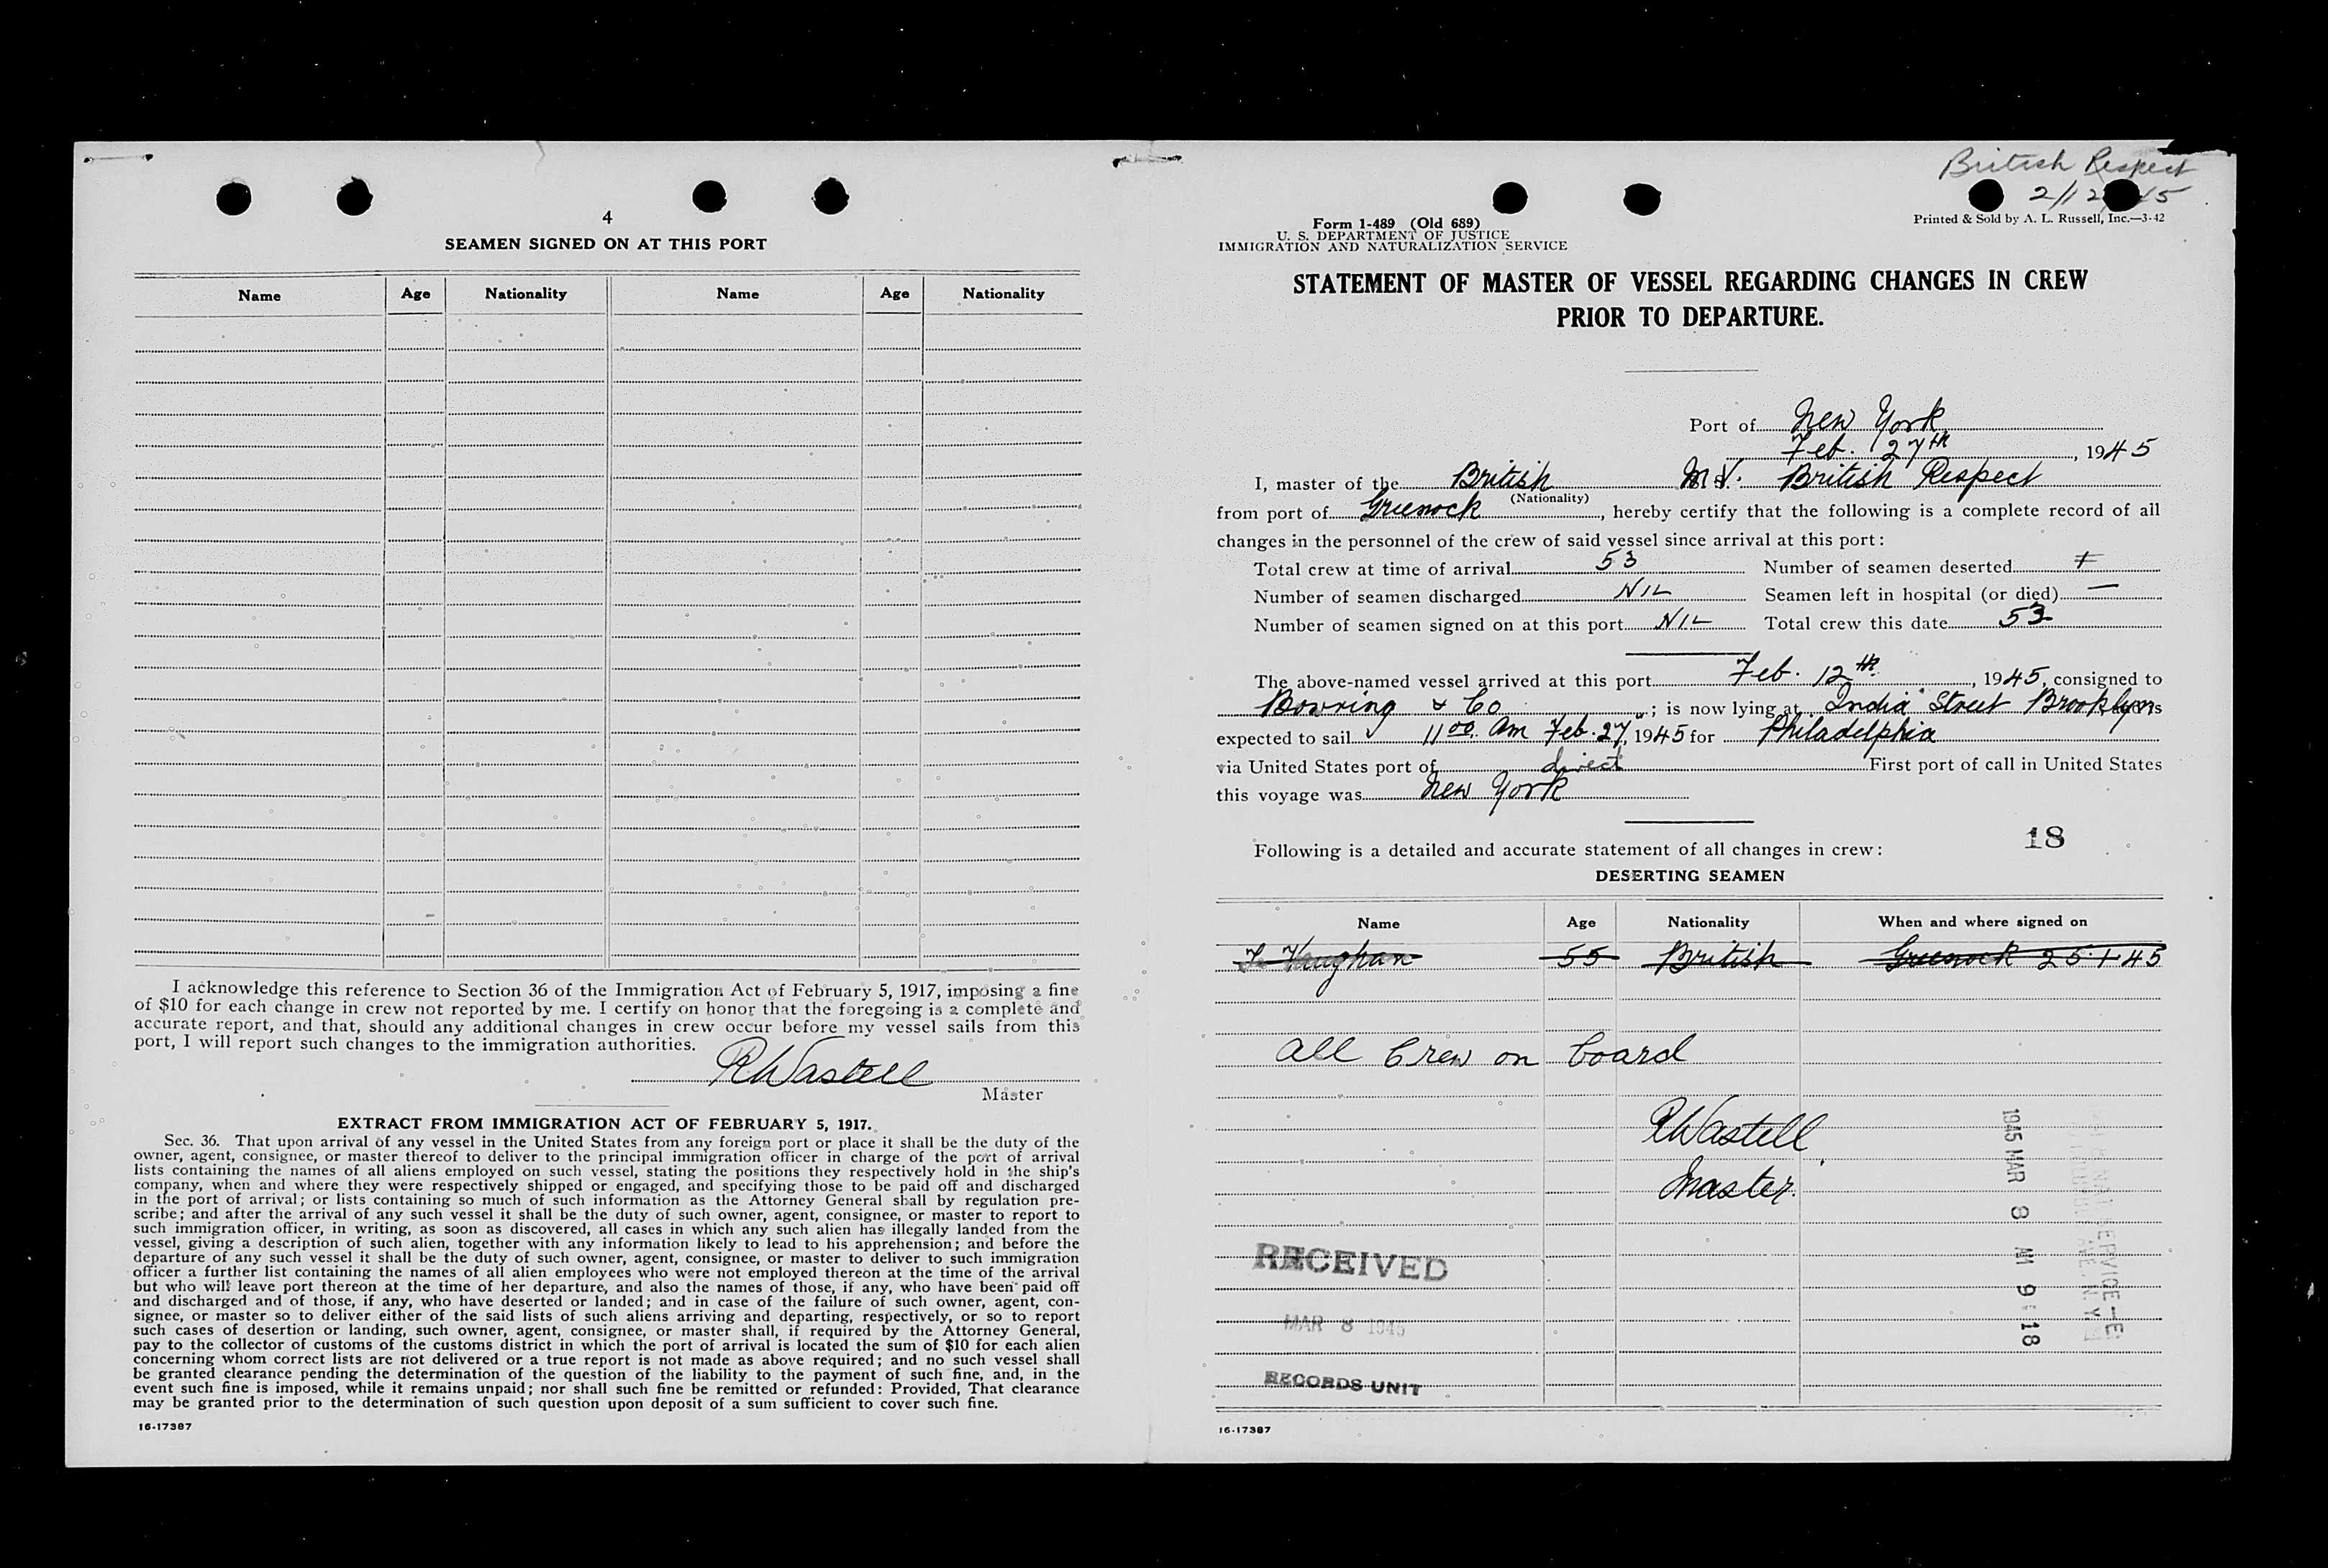 4
SEAMEN SIGNED ON AT THIS PORT
Name Age Nationality Name Age Nationality
I acknowledge this reference to Section 36 of the Immigration Act of February 5, 1917, imposing a fine
of $10 for each change in crew not reported by me. I certify on honor that the foregoing is a complete and
accurate report, and that, should any additional changes in crew occur before my vessel sails from this
port, I will report such changes to the immigration authorities.
R Wastell
Master
EXTRACT FROM IMMIGRATION ACT OF FEBRUARY 5, 1917.
Sec. 36. That upon arrival of any vessel in the United States from any foreign port or place it shall be the duty of the
owner, agent, consignee, or master thereof to deliver to the principal immigration officer in charge of the port of arrival
lists containing the names of all aliens employed on such vessel, stating the positions they respectively hold in the ship's
company, when and where they were respectively shipped or engaged, and specifying those to be paid off and discharged
in the port of arrival; or lists containing so much of such information as the Attorney General shall by regulation pre-
scribe; and after the arrival of any such vessel it shall be the duty of such owner, agent, consignee, or master to report to
such immigration officer, in writing, as soon as discovered, all cases in which any such alien has illegally landed from the
vessel, giving a description of such alien, together with any information likely to lead to his apprehension; and before the
departure of any such vessel it shall be the duty of such owner, agent, consignee, or master to deliver to such immigration
officer a further list containing the names of all alien employees who were not employed thereon at the time of the arrival
but who will leave port thereon at the time of her departure, and also the names of those, if any, who have been paid off
and discharged and of those, if any, who have deserted or landed; and in case of the failure of such owner, agent, con-
signee, or master so to deliver either of the said lists of such aliens arriving and departing, respectively, or so to report
such cases of desertion or landing, such owner, agent, consignee, or master shall, if required by the Attorney General,
pay to the collector of customs of the customs district in which the port of arrival is located the sum of $10 for each alien
concerning whom correct lists are not delivered or a true report is not made as above required; and no such vessel shall
be granted clearance pending the determination of the question of the liability to the payment of such fine, and, in the
event such fine is imposed, while it remains unpaid; nor shall such fine be remitted or refunded: Provided, That clearance
may be granted prior to the determination of such question upon deposit of a sum sufficient to cover such fine.
16-17387
British Respect
2/12/45
Form 1-489 (Old 689)
U. S. DEPARTMENT OF JUSTICE
IMMIGRATION AND NATURALIZATION SERVICE
Printed & Sold by A. L. Russell, Inc.—3-42
STATEMENT OF MASTER OF VESSEL REGARDING CHANGES IN CREW
PRIOR TO DEPARTURE.
Port of New York
Feb. 27th, 1945
I, master of the British M.V. British Respect
(Nationality)
from port of Greenock, hereby certify that the following is a complete record of all
changes in the personnel of the crew of said vessel since arrival at this port:
Total crew at time of arrival 53 Number of seamen deserted
Number of seamen discharged NIL Seamen left in hospital (or died) —
Number of seamen signed on at this port NIL Total crew this date 53
The above-named vessel arrived at this port Feb. 12th, 1945, consigned to
Bowring & Co; is now lying at India Street Brooklyn
expected to sail 11 00 Am Feb. 27, 1945 for Philadelphia
via United States port of direct First port of call in United States
this voyage was New York
18
Following is a detailed and accurate statement of all changes in crew:
DESERTING SEAMEN
Name Age Nationality When and where signed on
Vaughan 55 British Greenock 25.1.45
all Crew on board
R Wastell
Master.
RECEIVED
MAR 8 1945
RECORDS UNIT
1945 MAR 8 AM 9 18
16-17387